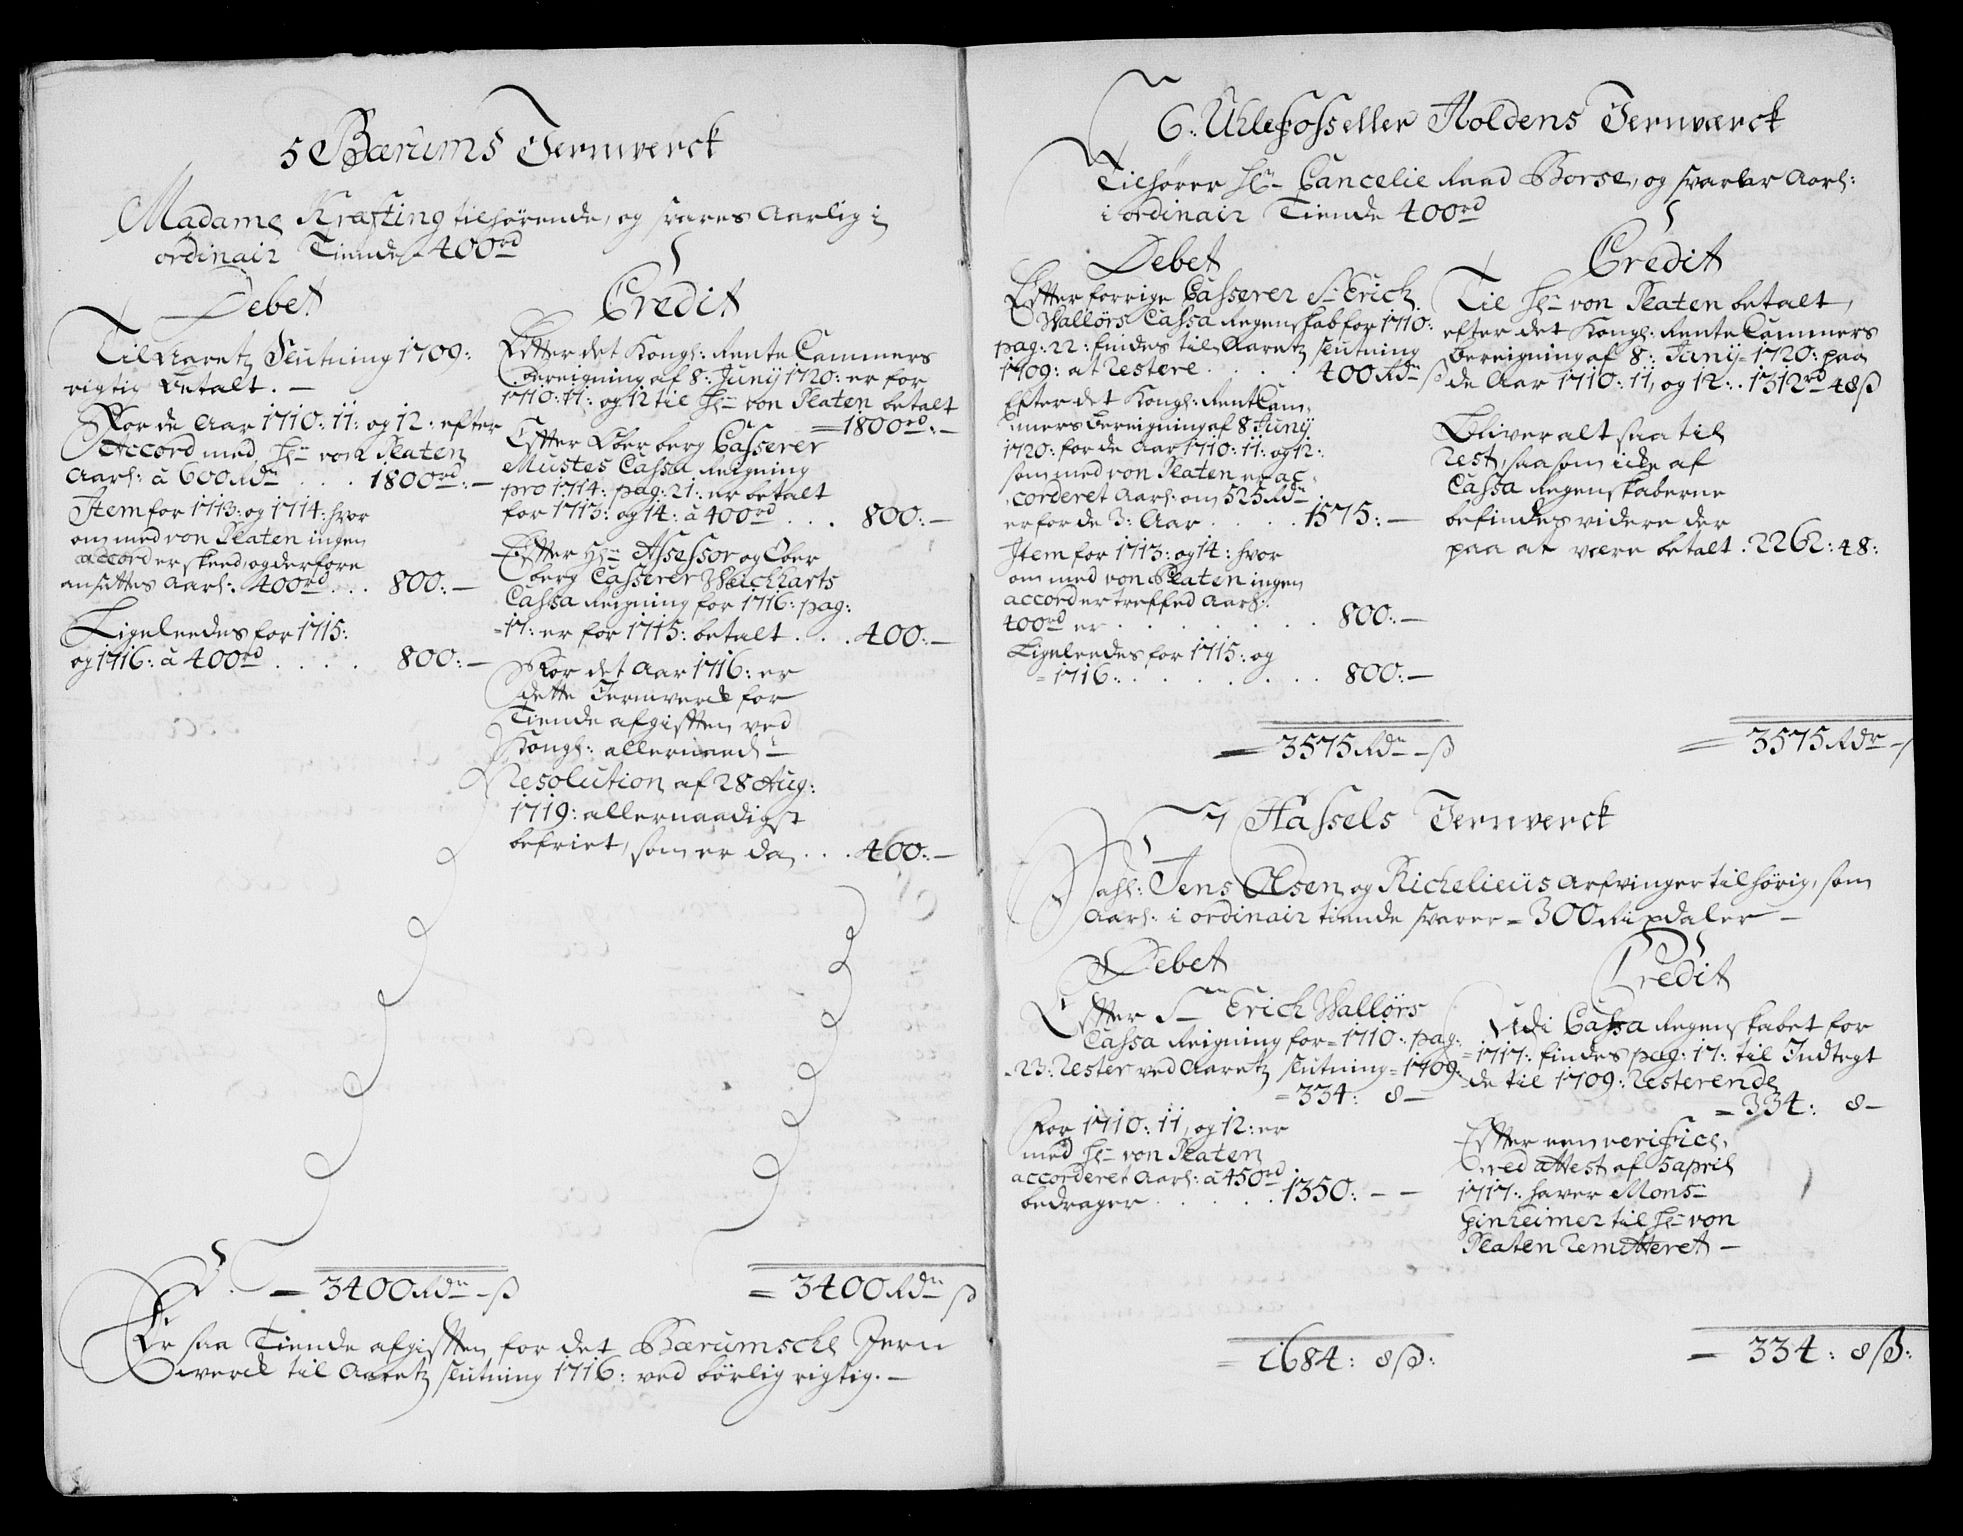 5 Bærums Jernverck
Madame Kræfting tilhørende, og svares Aarlig i
ordinair Tiende 400rd
Debet
Til Aaretz Slutning 1709:
rigtig betalt. —
For de Aar 1710: 11: og 12: efter
Accord med Hr von Platen
Aarl: à 600 Rdr . . . 1800rd: —
Item for 1713: og 1714: hvor
om med von Platen ingen
accord er skeed, og derfore
ansettes Aarl: 400rd . . . 800: —
Ligeleedes for 1715:
og 1716: à 400rd . . . . 800: —
Credit
Efter det Kongl: Rente Cammers
bereigning af 8: Junij 1720: er for
1710: 11: og 12 til Hr von Platen betalt
= 1800rd: —
Efter Oberberg Casserer
Mustes Cassa Reigning
pro 1714: pag: 21: er betalt
for 1713: og 14: à 400rd . . . 800: —
Efter Hr Assessor og Ober
berg Casserer Weichharts
Cassa Reigning for 1716: pag:
17: er for 1715: betalt . . . 400: —
For det Aar 1716: er
dette Jernverck for
Tiende afgifften ved
Kongl: allernaad:
Resolution af 28 Aug:
1719: allernaadigst
befriet, som er da . . . 400: —
= 3400 Rdr - ß
= 3400 Rdr ß
Er saa Tiende afgifften for det Bærumsche Jern
werck til Aaretz slutning 1716: ved børlig rigtig. —
6: Uhlefoss eller Holdens Jernværck
Tilhører Hr Cancelie Raad Borse, og svarer Aarl:
i ordinair Tiende 400rd
Debet
Efter forrige Casserer Sr Erich
Wallørs Cassa Regenskab for 1710:
pag: 22: findes til Aaretz slutning
1709: at restere . . . . 400 Rdr ß
Efter det Kongl: Rent Cam-
mers bereigning af 8 Junij
1720: for de Aar 1710: 11: og 12:
som med von Platen er ac-
corderet Aarl: om 525 Rdr
er for de 3: Aar . . . . 1575: —
Item for 1713: og 14: hvor
om med von Platen ingen
accord er treffed Aarl:
400rd er . . . . . . 800: —
Ligeleedes for 1715: og
1716: . . . . . . 800: —
Credit
Til Hr von Platen betalt,
efter det Kongl: Rente Cammers
bereigning af 8: Junij 1720: paa
de Aar 1710: 11, og 12: . 1312rd 48ß
Bliver alt saa til
rest, saasom icke af
Cassa Regenskaberne
befindes videre der
paa at være betalt . 2262: 48:
= 3575 Rdr - ß
= 3575 Rdr - ß
7 Hassels Jernverck
Sahl: Jens Olsen og Richelieüs arfvinger tilhørig, som
Aarl: i ordinair tiende svarer = 300 Rixdaler —
Debet
Efter Sr Erich Wallørs
Cassa Reigning for = 1710: pag:
23: rester ved Aaretz slutning = 1709:
= 334: 8 —
For 1710: 11, og 12: er
med Hr von Platen
accorderet Aarl: à 450rd
bedrager . . . . . 1350: — —
Credit
Udi Cassa Regenskabet for
= 1717: findes pag: 17: til Indtegt
de til 1709: resterende
= 334: 8 —
Efter een verific
ered attest af 5 april
1717: haver Monsr
Hinheimer til Hr von
Platen remitteret —
= 1684: 8ß:
= 334: 8ß: